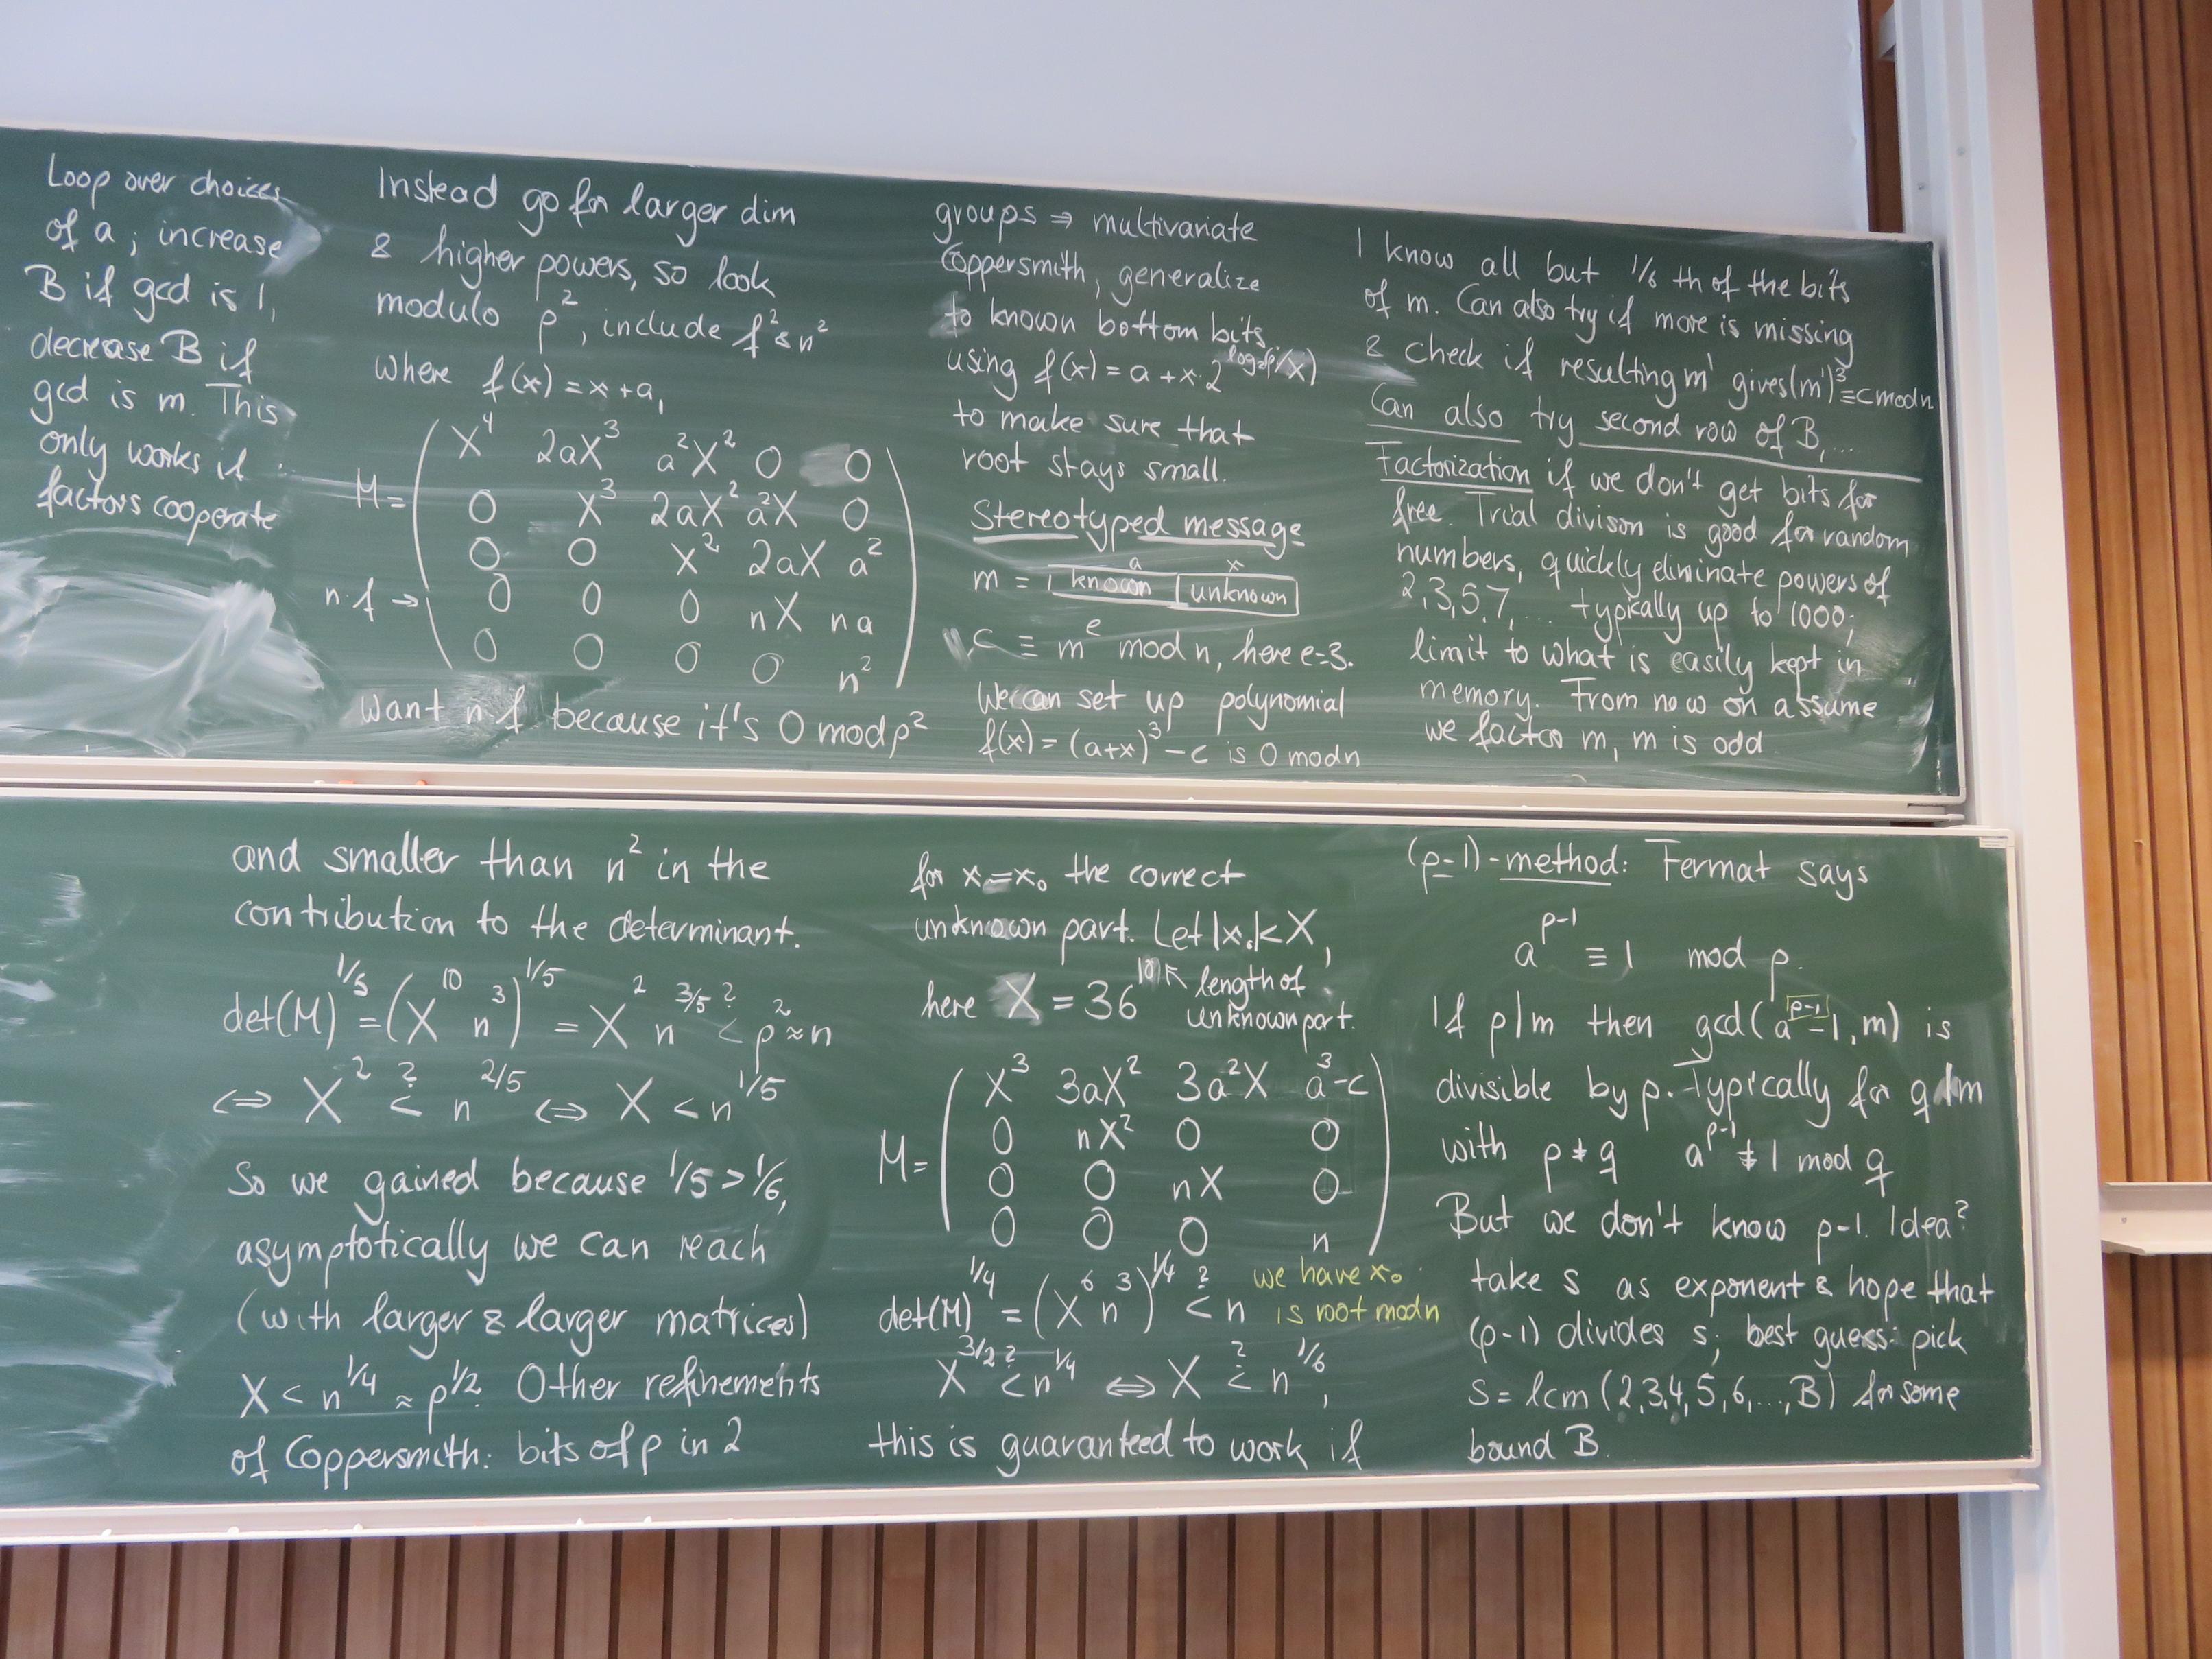 Loop over choices
of a; increase
B if gcd is 1,
decrease B if
gcd is m. This
only works if
factors cooperate
Instead go for larger dim
& higher powers, so look
modulo p², include f² & n²
where f(x) = x + a,
M = ( X⁴ 2aX³ a²X² 0 0
0 X³ 2aX² a²X 0
0 0 X² 2aX a²
n·f → 0 0 0 nX na
0 0 0 0 n² )
Want n f because it's 0 mod p²
and smaller than n² in the
contribution to the determinant.
det(M)^1/5 = (X^10 n³)^1/5 = X² n^3/5 <? p² ≈ n
⇔ X² <? n^2/5 ⇔ X < n^1/5
So we gained because 1/5 > 1/6,
asymptotically we can reach
(with larger & larger matrices)
X < n^1/4 ≈ p^1/2. Other refinements
of Coppersmith: bits of p in 2
groups ⇒ multivariate
Coppersmith, generalize
to known bottom bits
using f(x) = a + x·2
to make sure that
root stays small.
Stereotyped message
a x
m = known unknown
c ≡ m^e mod n, here e=3.
We can set up polynomial
f(x) = (a+x)³ - c is 0 mod n
for x = x₀ the correct
unknown part. Let |x₀| < X,
here X = 36^10 ↖ length of
unknown part.
M = ( X³ 3aX² 3a²X a³-c
0 nX² 0 0
0 0 nX 0
0 0 0 n )
det(M)^1/4 = (X⁶ n³)^1/4 <? n we have x₀
is root mod n
X^3/2 <? n^1/4 ⇔ X <? n^1/6,
this is guaranteed to work if
I know all but 1/6 th of the bits
of m. Can also try if more is missing
& check if resulting m' gives (m')³ ≡ c mod n
Can also try second row of B,...
Factorization if we don't get bits for
free. Trial divison is good for random
numbers, quickly eliminate powers of
2,3,5,7,... typically up to 1000;
limit to what is easily kept in
memory. From now on assume
we factor m, m is odd
(p-1)-method: Fermat says
a^p-1 ≡ 1 mod p.
If p|m then gcd(a^p-1 - 1, m) is
divisible by p. Typically for q|m
with p ≠ q a^p-1 ≢ 1 mod q
But we don't know p-1. Idea?
take s as exponent & hope that
(p-1) divides s; best guess: pick
s = lcm (2,3,4,5,6,...,B) for some
bound B.